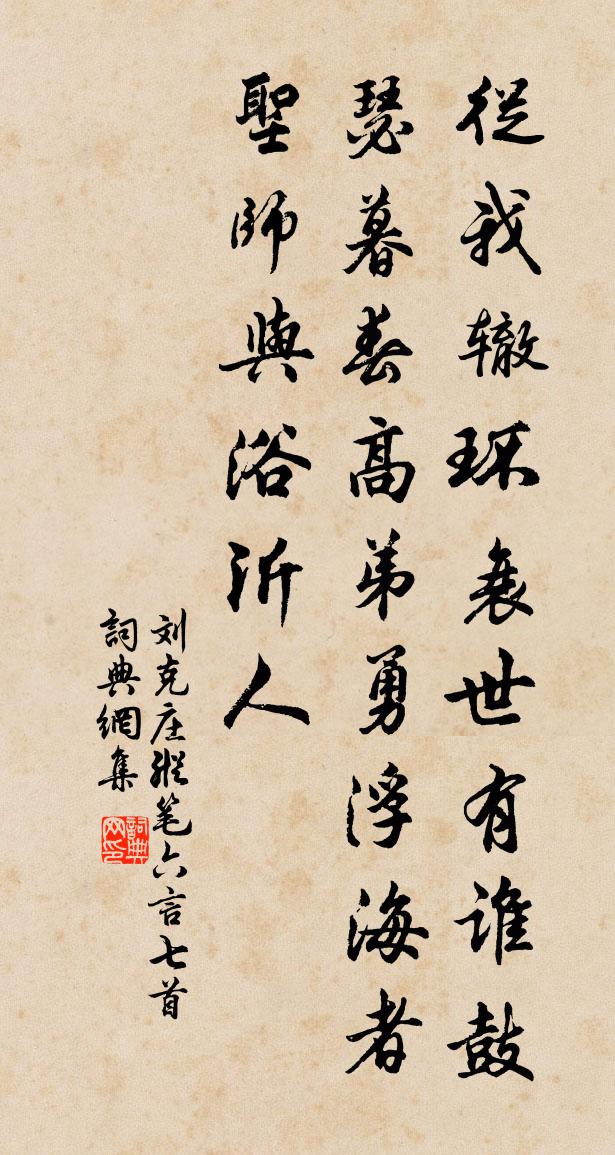 從我辙环衰世有誰鼓
瑟暮春高弟勇浮海者
聖師與浴沂人
刘克庄縱笔六言七首
詞典網集
詞典网印